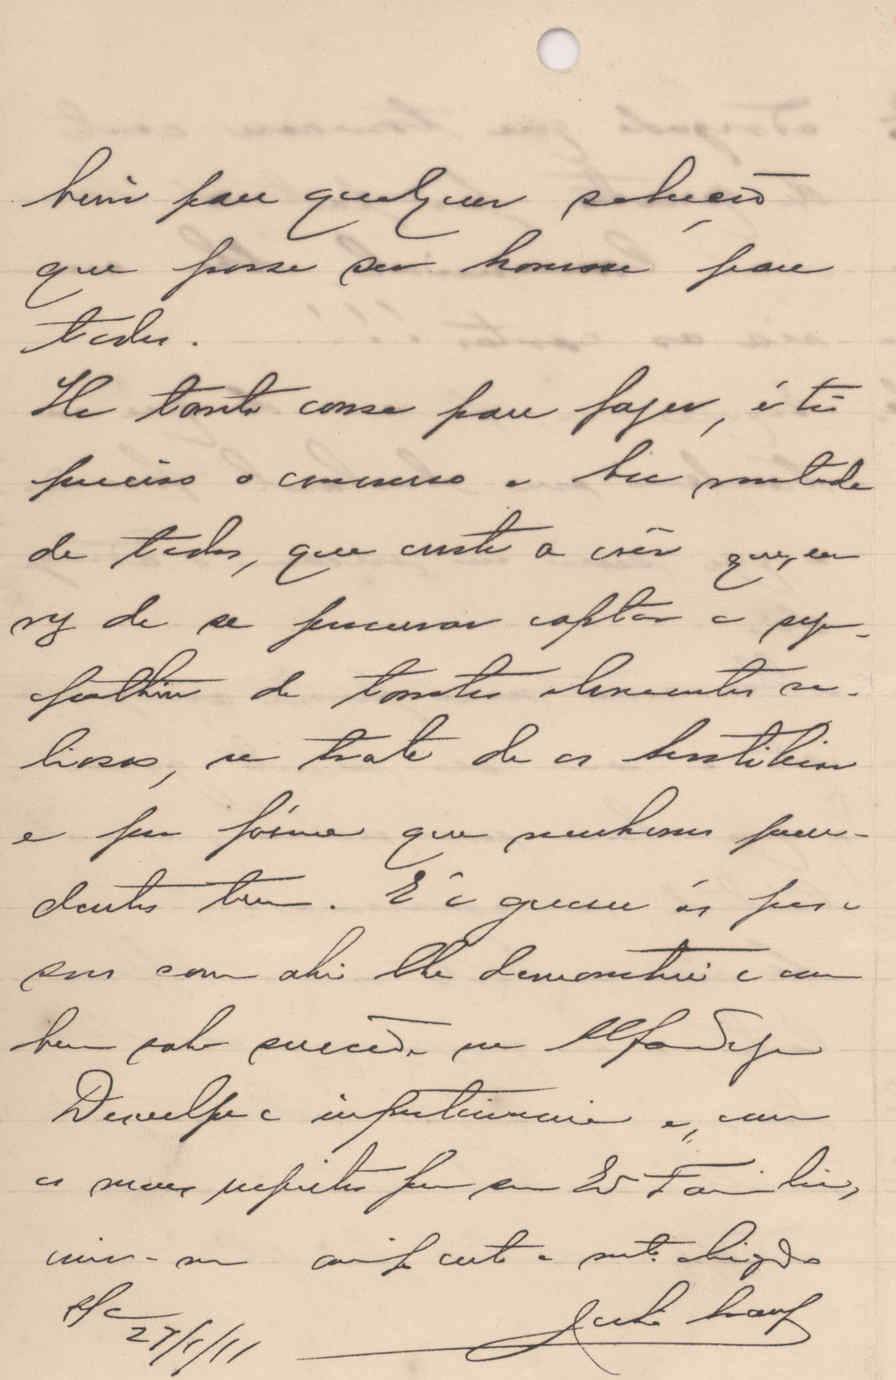 bem para qualquer solução
que possa ser honrosa para
todos.
Ha tanta cousa para fazer, é tão
preciso o concurso e boa vontade
de todos, que custa a crêr que, em
vez de se procurar captar a sym-
pathia de tantos elementos va-
liosos, se trate de os hostilisar
e por fórma que nenhuns prece-
dentes tem. E' a guerra ás
como ahi lhe demonstrei e com
bem sabe succede na Alfandega
Desculpe a impertinencia e, com
os meus respeitos para sua Ex Familia,
creia-me amigo certo e mto obrigado
S/c
27/1/11